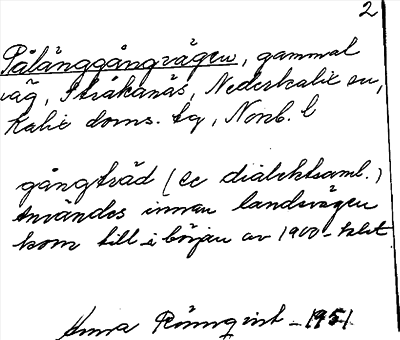 2
Pålänggångvägen, gammal
väg, Stråkanäs, Nederkalix sn,
Kalix doms. tg, Norrb. l
gångträd (se dialektsaml.)
Användes innan landsvägen
kom till i början av 1900-talet
Anna Rönnqvist - 1951.